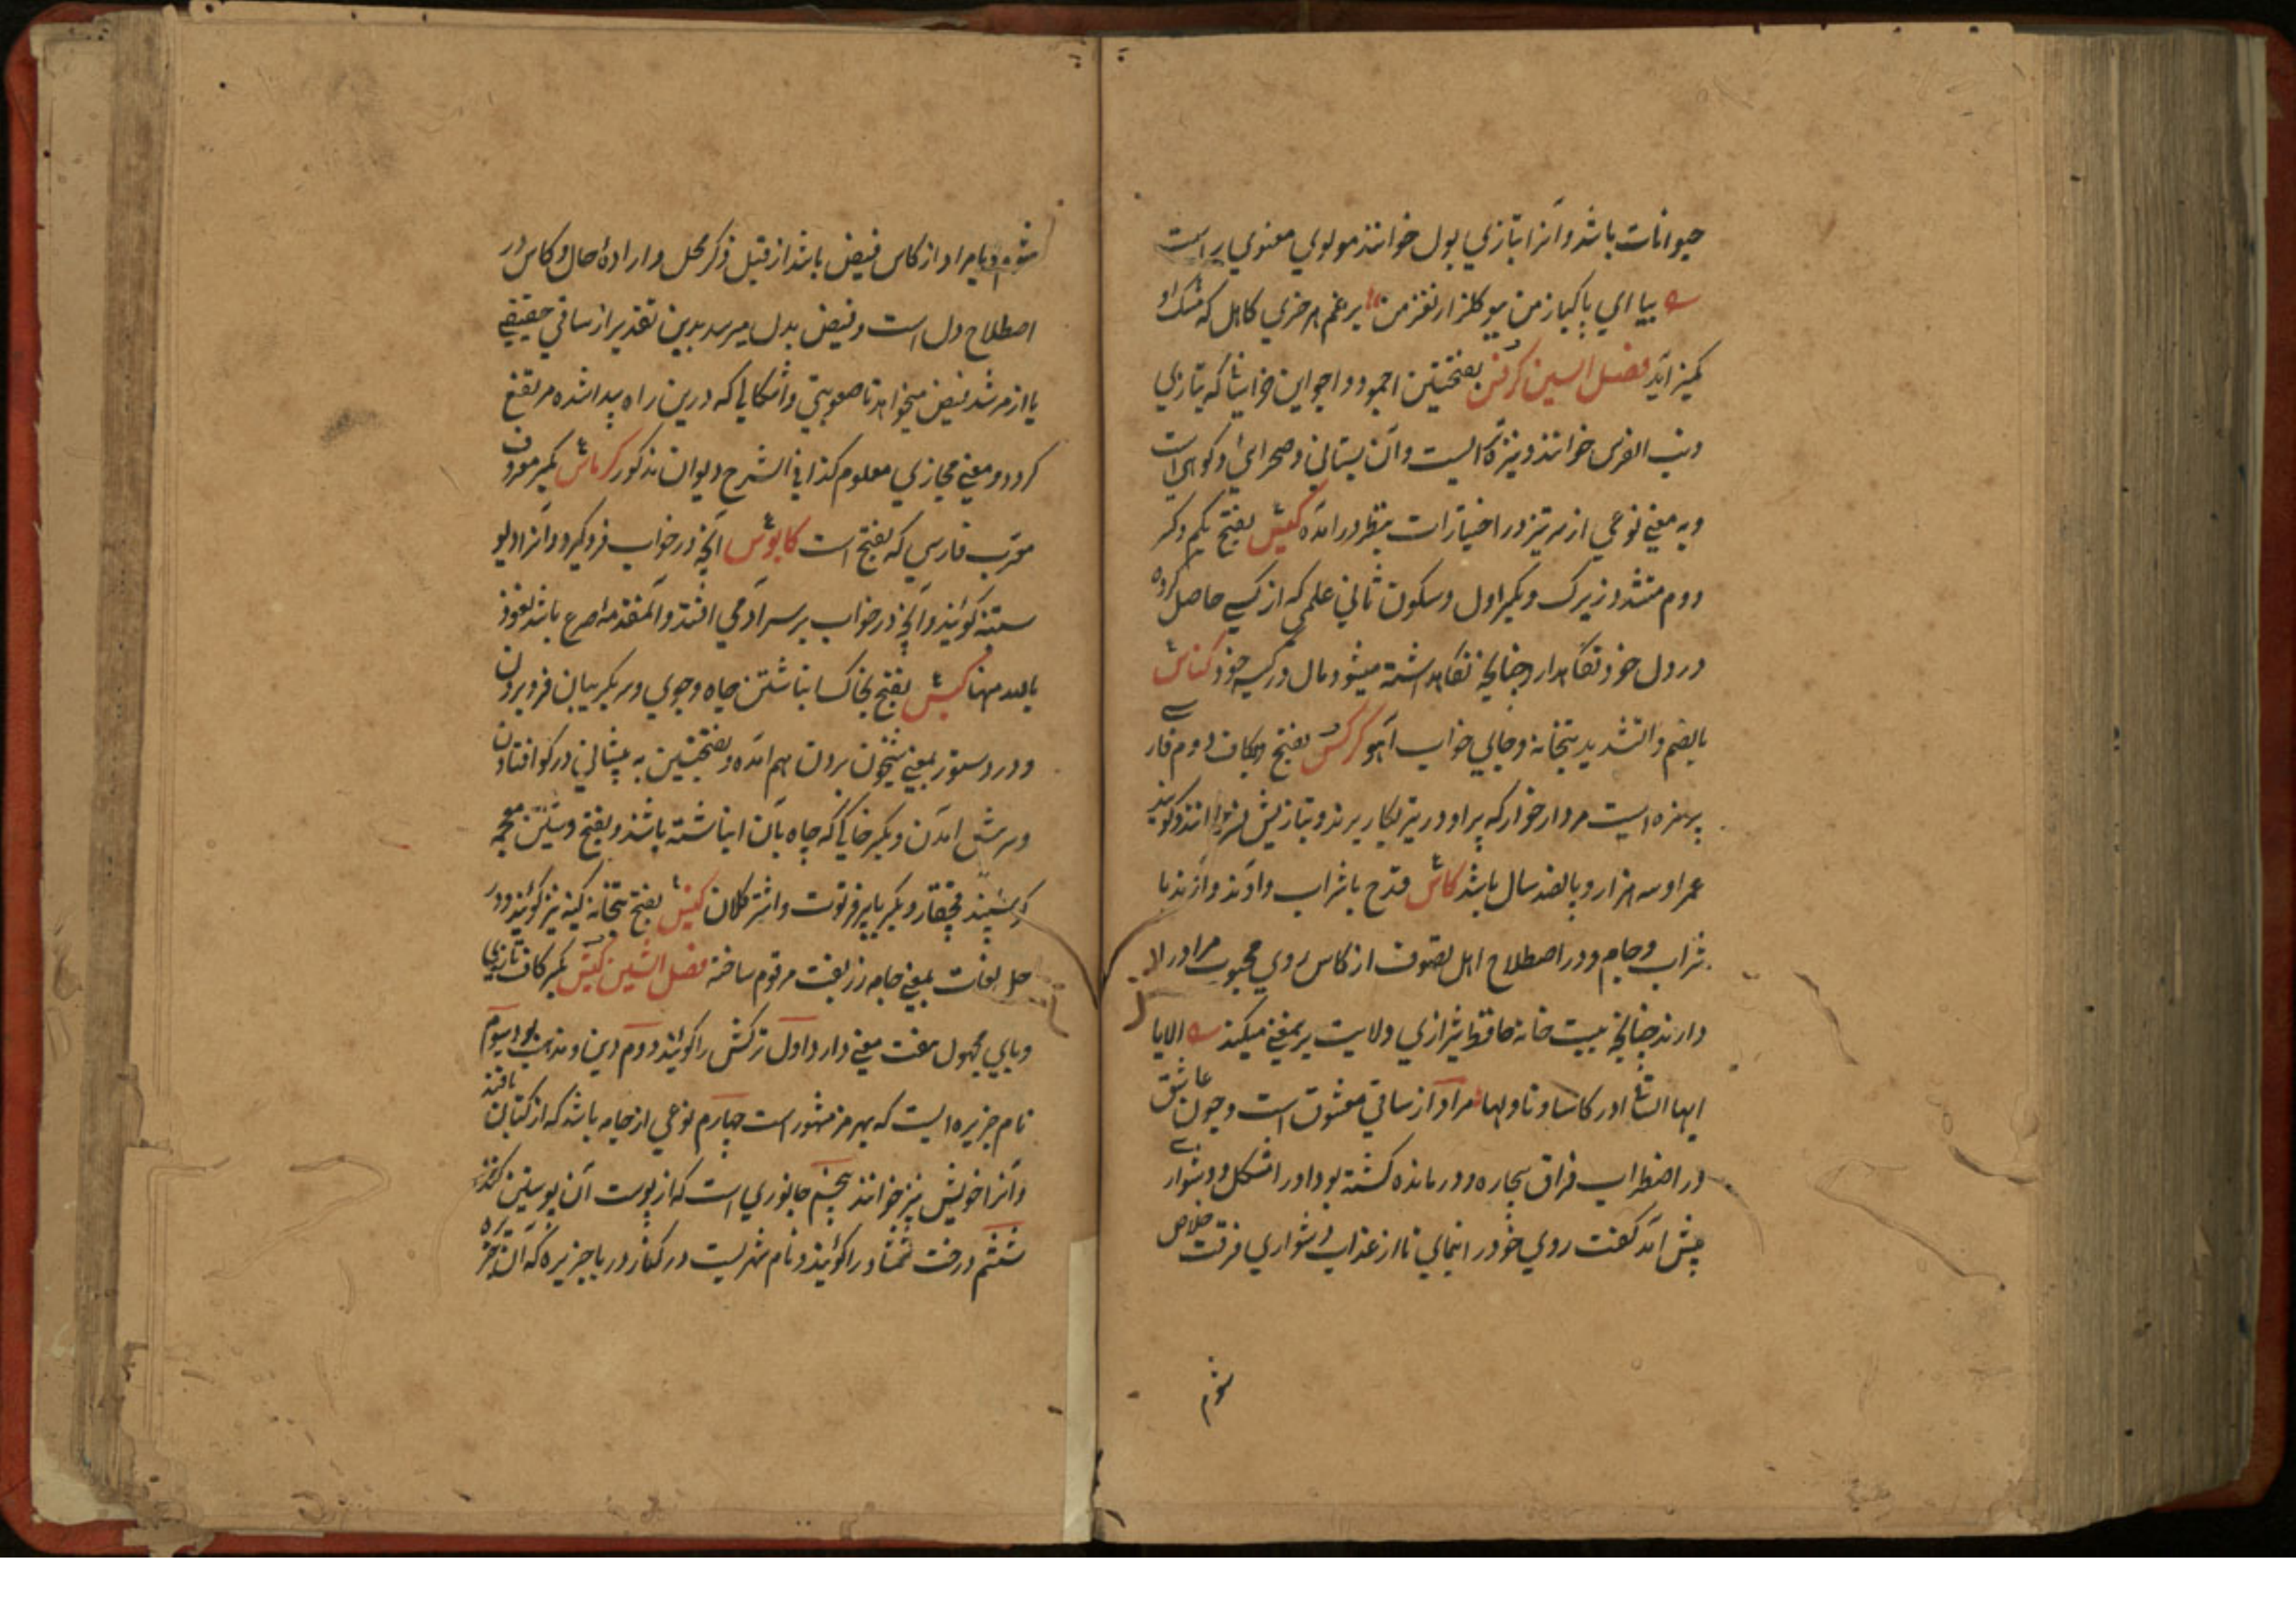 حیوانات باشد و آنرا بتازی بول خوانند مولوی معنوی راست
بیا ای پاکباز من ببو گلزار نغز من برغم هر خری کاهل که مشک او
کمیز آید فصل السین کرفس بفتحتین اجمود و اجواین خراسانی که بتازی
خوانند و نیز و آن بستانی و صحرائی و کوهی است
و به معنی نوعی از در اختیارات بنظر در آمده کیس بفتح یکم و کسر
دوم مشدد زیرک و بکسر اول و سکون ثانی علمی که از کسی حاصل کرده
در دل خود نگاهدارد چنانچه نگاهداشته میشود مال در کیسه خود کناس
بالضم و التشدید بتخانه و جای خواب آهو کرکس بفتح و بکاف دوم فارسی
پرنده ایست مردار خوار که پر او در تیر بکار برند و بتازیش نسر خوانند و گویند
عمر او سه هزار و پانصد سال باشد کاس قدح با شراب و آوند و آوند با
شراب و جام و در اصطلاح اهل تصوف از کاس روی محبوب مراد
دارند چنانچه بیت حافظ شیرازی ولایت برمعنی میکند الا یا
ایها الساقی ادر کاسا و ناولها مراد از ساقی معشوق است و چون عاشق
در اضطراب فراق بیچاره و درمانده گشته بود او را مشکل و دشواری
پیش آمد گفت روی خود را نمای تا از عذاب دشواری فرقت خلاص
شوم
شوم و یا مراد از کاس فیض باشد از قبیل ذکر محل و اراده حال و کاس در
اصطلاح دل است و فیض بدل میرسد بدین تقدیر از ساقی حقیقی
یا از مرشد فیض میخواهد تا صعوبتی و اشکالی که درین راه پیدا شده مرتفع
گردد و معنی مجازی معلوم کذا فی الشرح دیوان مذکور کرباس بکسر معروف
معرب فارسی که بفتح است کابوس آنچه در خواب فرو گیرد و آنرا دیو
ستنبه گویند و آنچه در خواب بر سر آدمی افتد و آن مقدمه صرع باشد نعوذ
بالله منها کبس بفتح بخاک انباشتن چاه و جوی و سر بگریبان فرو بردن
و در دستور بمعنی شبیخون بردن هم آمده و بفتحتین به پیشانی در گو افتادن
و آمدن و بکسر خاکی که چاه بآن انباشته باشند و بفتح و شین معجمه
گوسپند قچقار و بکسر پا پیر فرتوت و اشتر کلان کنس بفتح بتخانه کنه نیز گویند و در
حل لغات بمعنی جامه زربفت مرقوم ساخته فصل الشین کیش بکسر کاف تازی
و یای مجهول هفت معنی دارد اول ترکش را گویند دوم دین و مذهب بود سیوم
نام جزیره ایست که بهرمز مشهور است چهارم نوعی از جامه باشد که از کتان بافند
و آنرا خویش نیز خوانند پنجم جانوری است که از پوست آن پوستین کنند
ششم درخت شمشاد را گویند و نام شهریست در کنار دریا جزیره که